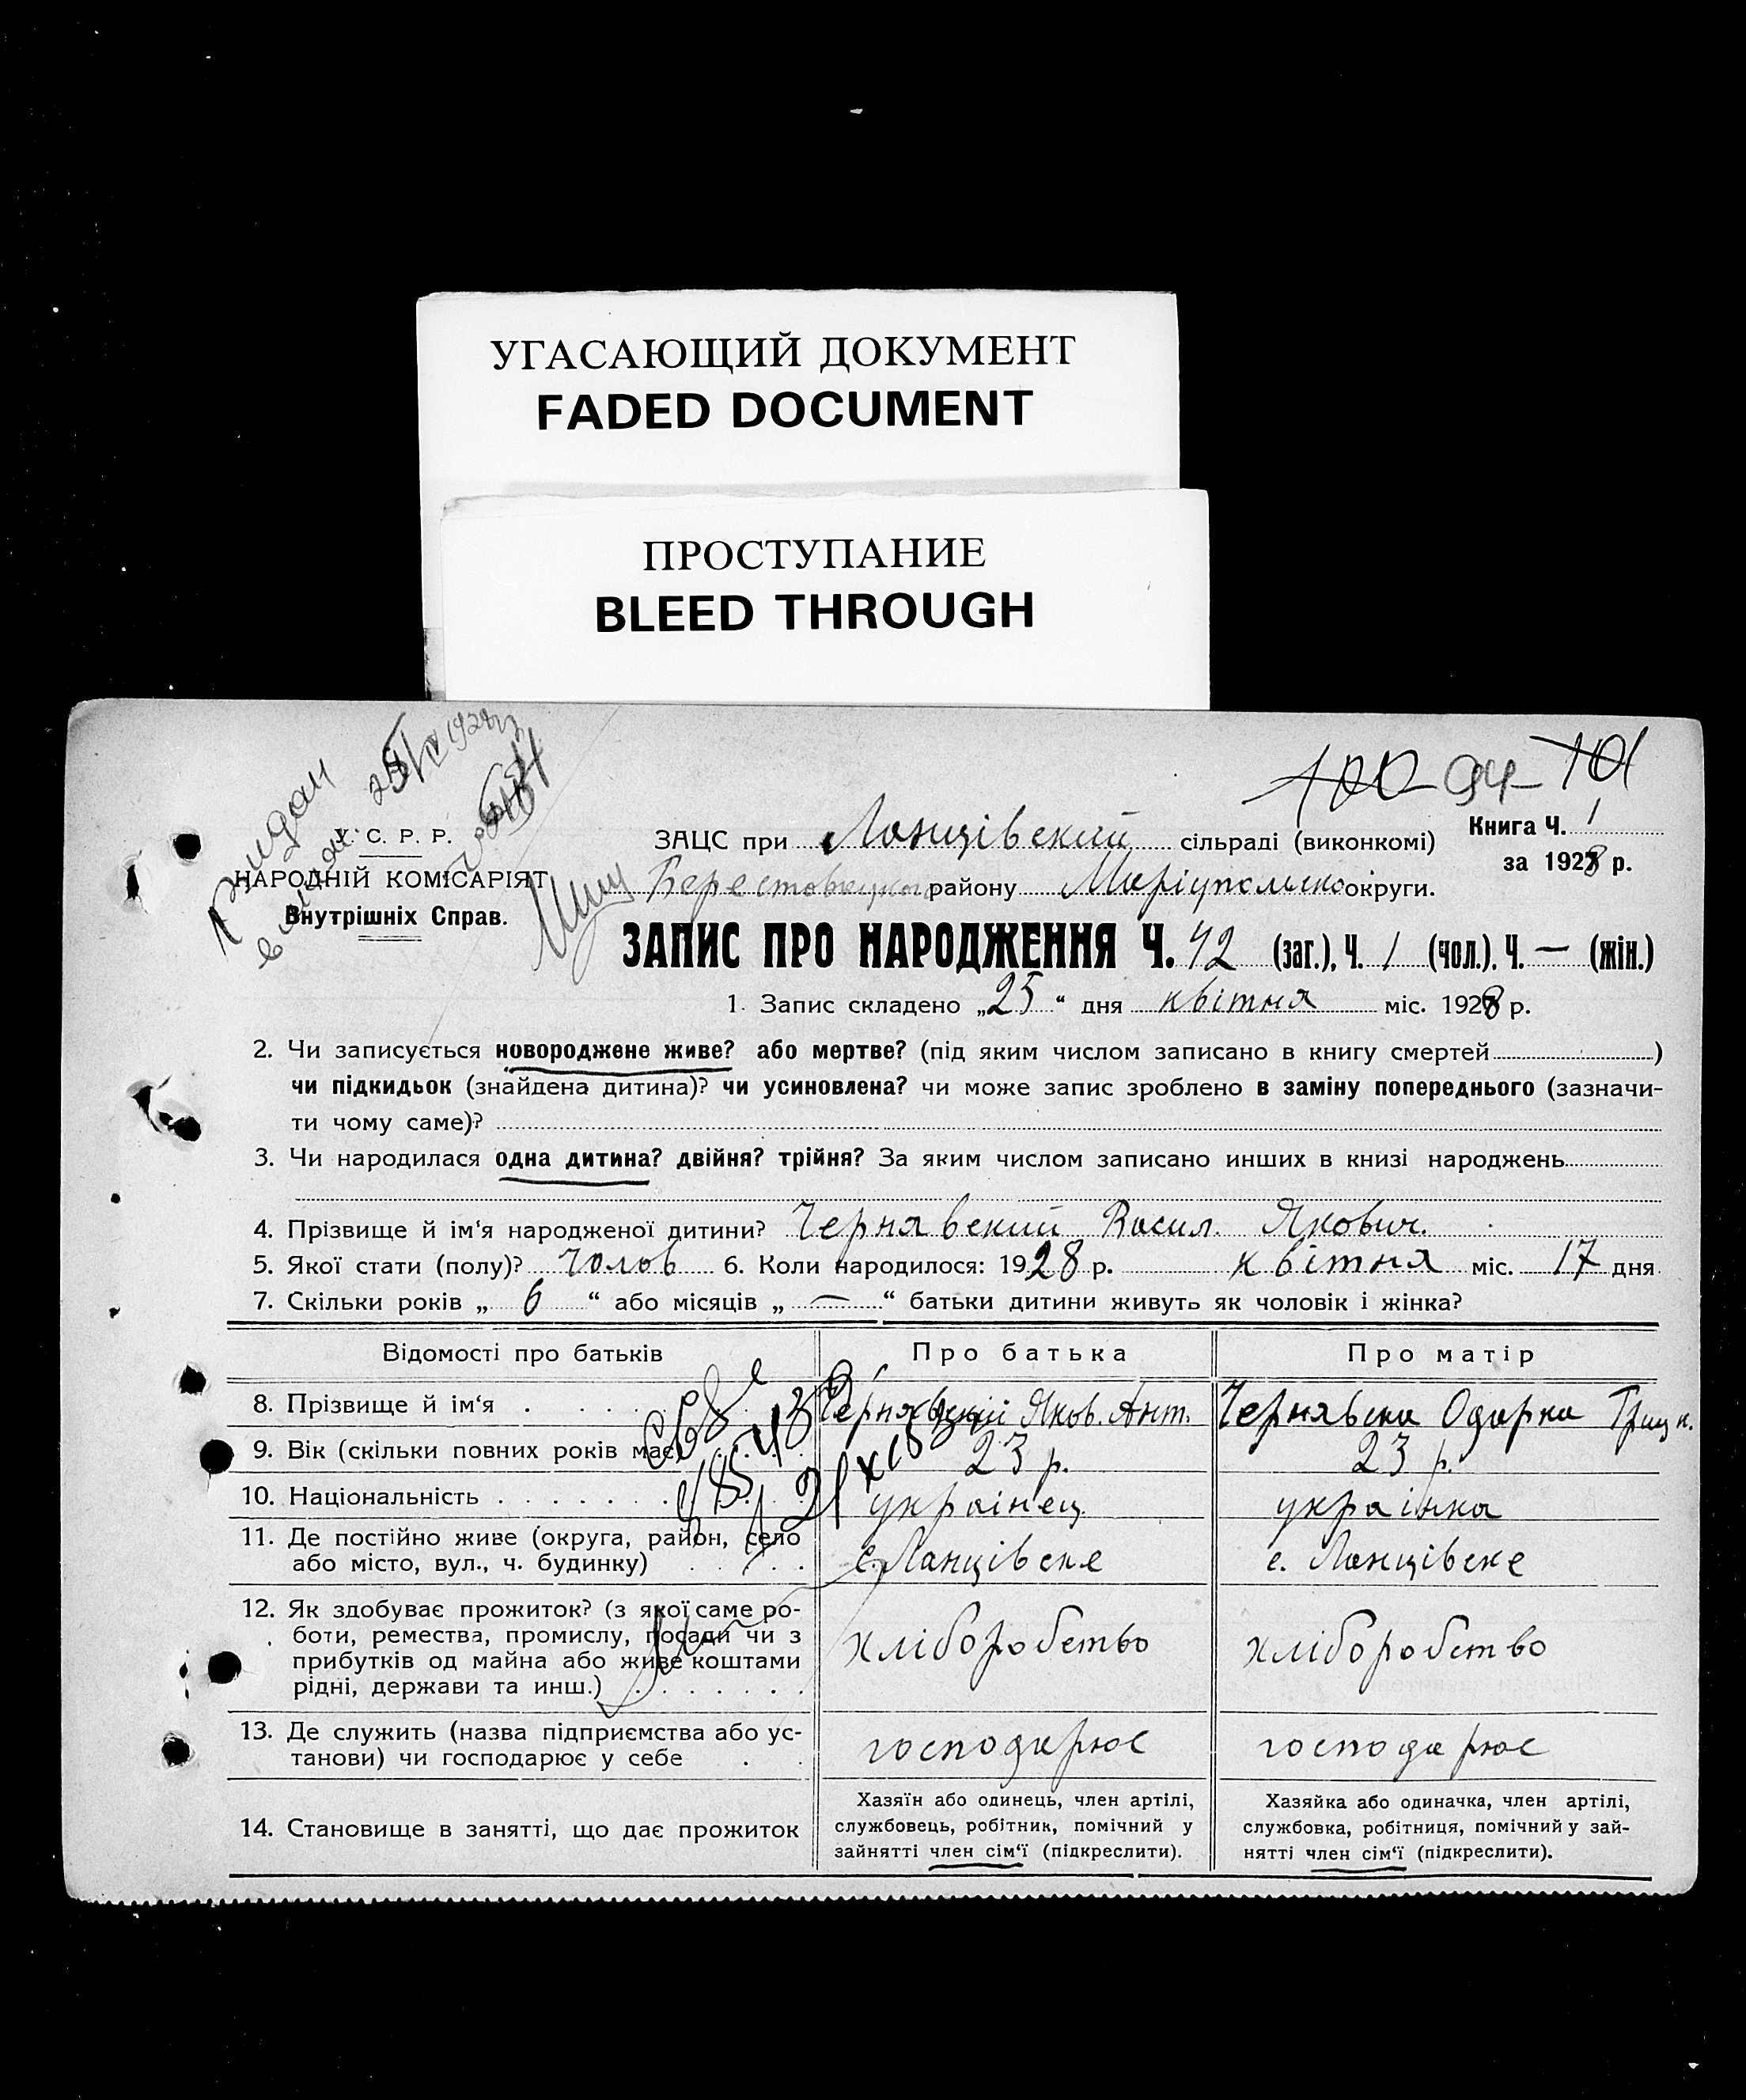 УГАСАЮЩИЙ ДОКУМЕНТ
FADED DOCUMENT
ПРОСТУПАНИЕ
BLEED THROUGH
100 94 101
У. С. Р. Р.
НАРОДНІЙ КОМІСАРІЯТ
Внутрішніх Справ.
ЗАЦС при Ланцівский сільраді (виконкомі)
Книга Ч. 1
за 1928 р.
району Маріупольско округи.
ЗАПИС ПРО НАРОДЖЕННЯ Ч. 42 (заг.), Ч. 1 (чол.), Ч. — (жін.)
1. Запис складено „25“ дня квітня міс. 1928 р.
2. Чи записується новороджене живе? або мертве? (під яким числом записано в книгу смертей)
чи підкидьок (знайдена дитина)? чи усиновлена? чи може запис зроблено в заміну попереднього (зазначи-
ти чому саме)?
3. Чи народилася одна дитина? двійня? трійня? За яким числом записано инших в книзі народжень
4. Прізвище й ім‘я народженої дитини? Чернявский Васил. Якович.
5. Якої стати (полу)? Чолов 6. Коли народилося: 1928 р. квітня міс. 17 дня
7. Скільки років „ 6 “ або місяців „ — “ батьки дитини живуть як чоловік і жінка?
Відомості про батьків Про батька Про матір
8. Прізвище й ім‘я Чернявский Яков. Ант. Чернявска Одарка
9. Вік (скільки повних років має) 23 р. 23 р.
10. Національність украінец украінка
11. Де постійно живе (округа, район, село
або місто, вул., ч. будинку) с. Ланцівске с. Ланцівске
12. Як здобуває прожиток? (з якої саме ро-
боти, ремества, промислу, посади чи з
прибутків од майна або живе коштами
рідні, держави та инш.) хліборобство хліборобство
13. Де служить (назва підприємства або ус-
танови) чи господарює у себе господарює господарює
14. Становище в занятті, що дає прожиток
Хазяїн або одинець, член артілі,
службовець, робітник, помічний у
зайнятті член сім‘ї (підкреслити).
Хазяйка або одиначка, член артілі,
службовка, робітниця, помічний у зай-
нятті член сім‘ї (підкреслити).